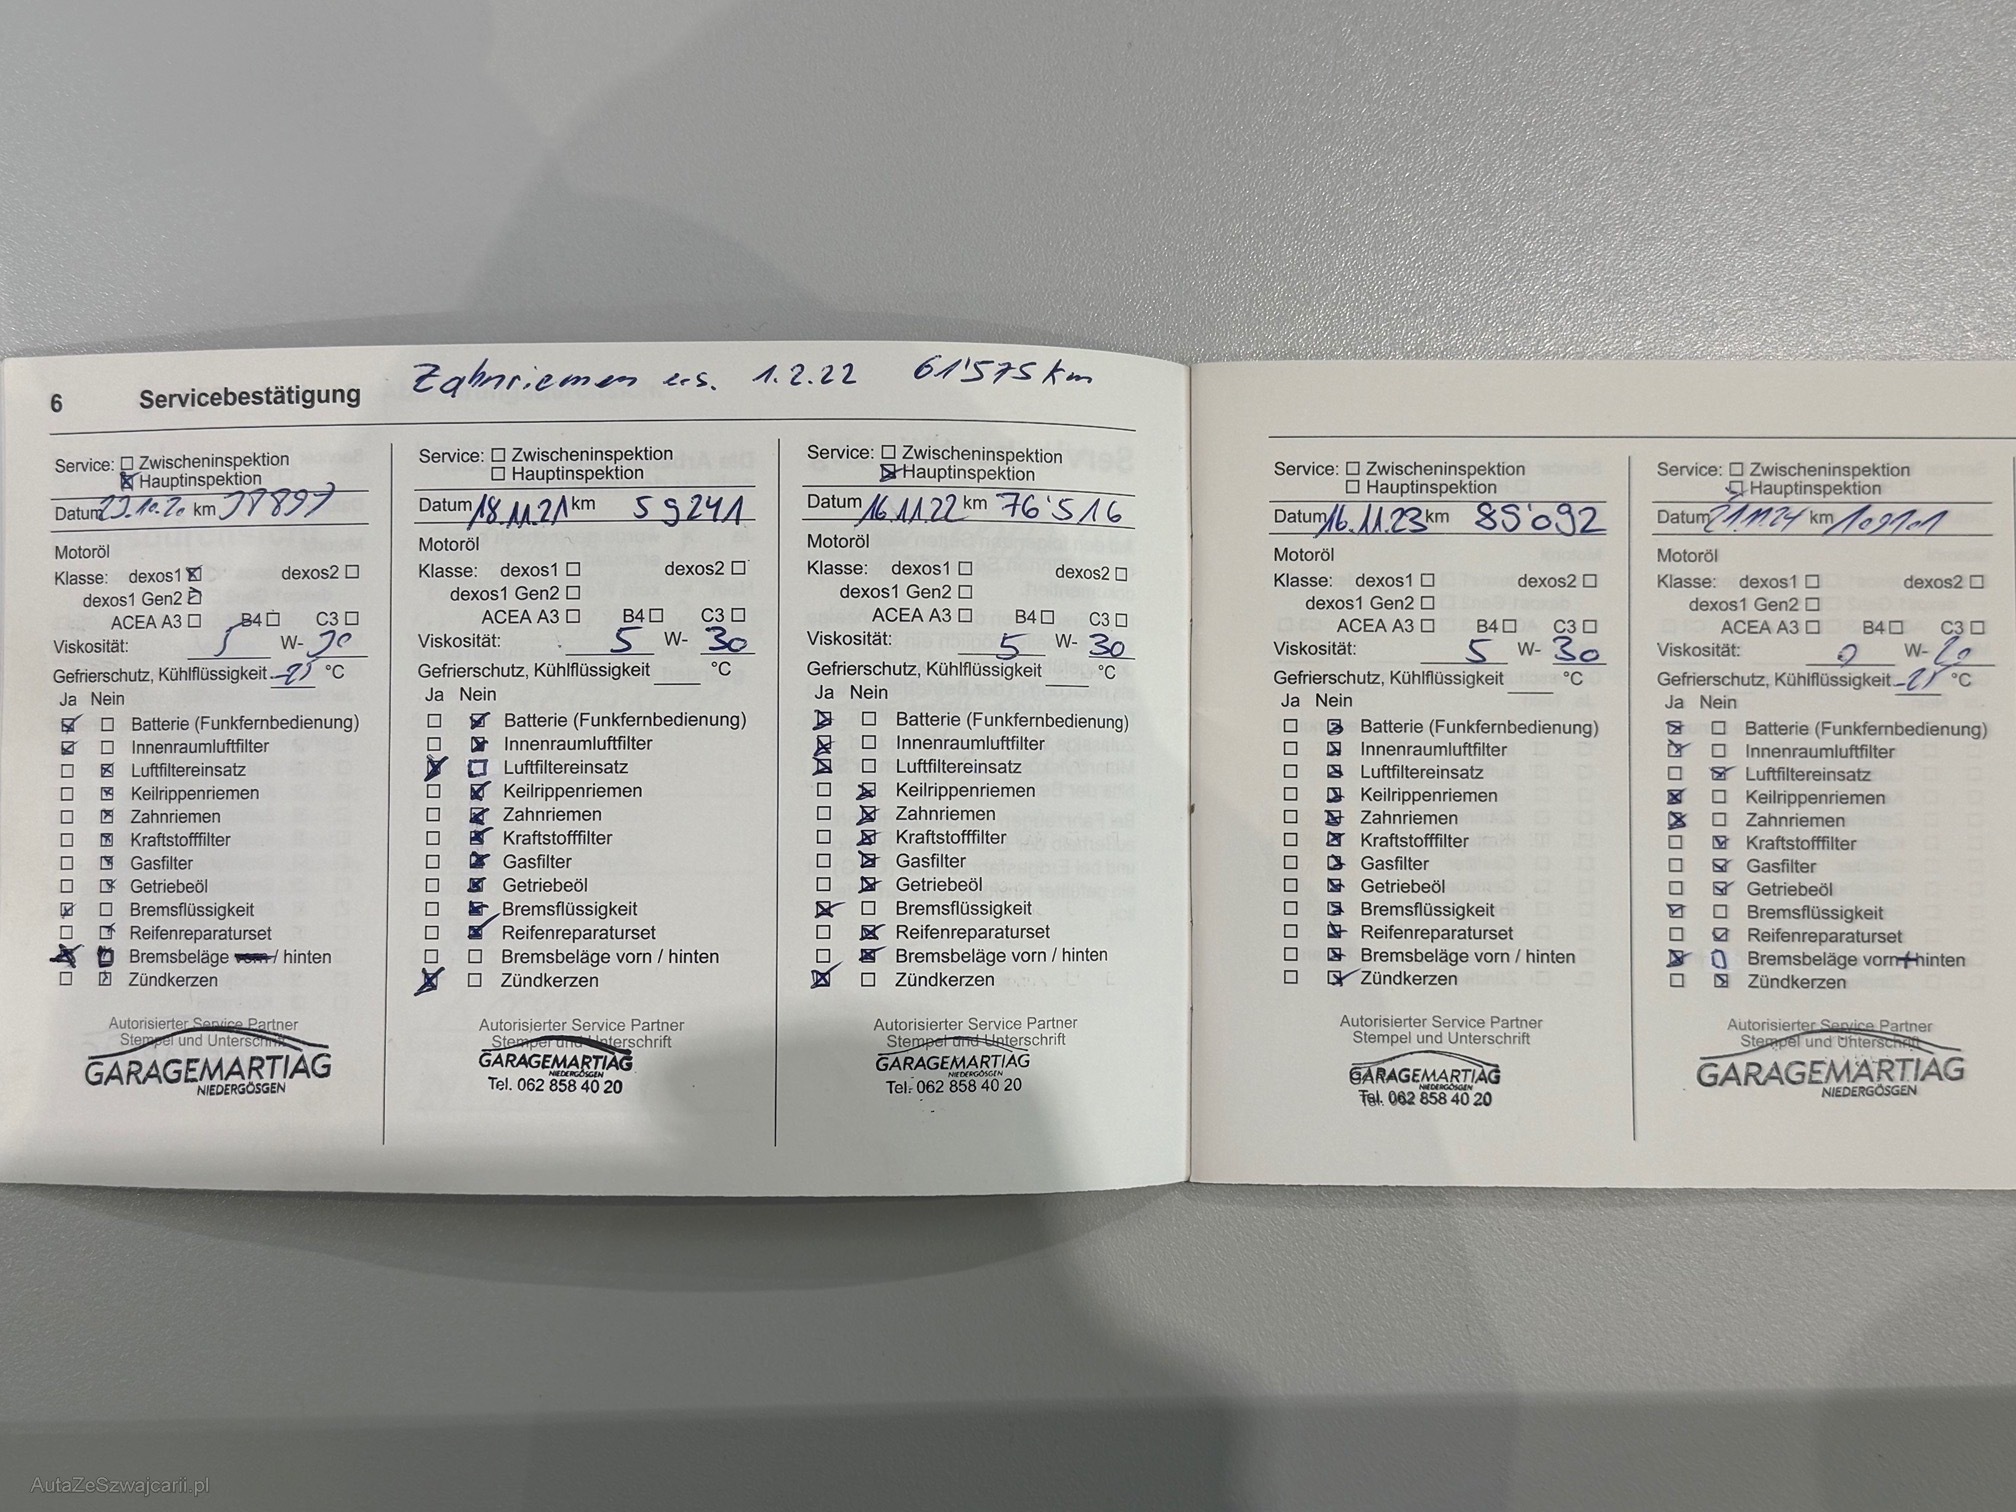 6 Servicebestätigung Zahnriemen ers. 1.2.22 61'575 km
Service: ☐ Zwischeninspektion
☒ Hauptinspektion
Datum km
Motoröl
Klasse: dexos1 ☒ dexos2 ☐
dexos1 Gen2
ACEA A3 ☐ B4 ☐ C3 ☐
Viskosität: 5 W- 30
Gefrierschutz, Kühlflüssigkeit °C
Ja Nein
☒ ☐ Batterie (Funkfernbedienung)
☒ ☐ Innenraumluftfilter
☐ ☒ Luftfiltereinsatz
☐ ☒ Keilrippenriemen
☐ ☒ Zahnriemen
☐ ☒ Kraftstofffilter
☐ ☒ Gasfilter
☐ ☒ Getriebeöl
☒ ☐ Bremsflüssigkeit
☐ ☒ Reifenreparaturset
☒ ☐ Bremsbeläge vorn / hinten
☐ ☒ Zündkerzen
Autorisierter Service Partner
Stempel und Unterschrift
GARAGEMARTIAG
NIEDERGÖSGEN
Service: ☐ Zwischeninspektion
☐ Hauptinspektion
Datum 18.11.21 km 59241
Motoröl
Klasse: dexos1 ☐ dexos2 ☐
dexos1 Gen2 ☐
ACEA A3 ☐ B4 ☐ C3 ☐
Viskosität: 5 W- 30
Gefrierschutz, Kühlflüssigkeit ____ °C
Ja Nein
☐ ☒ Batterie (Funkfernbedienung)
☐ ☒ Innenraumluftfilter
☒ ☐ Luftfiltereinsatz
☐ ☒ Keilrippenriemen
☐ ☒ Zahnriemen
☐ ☒ Kraftstofffilter
☐ ☒ Gasfilter
☐ ☒ Getriebeöl
☐ ☒ Bremsflüssigkeit
☐ ☒ Reifenreparaturset
☐ ☐ Bremsbeläge vorn / hinten
☒ ☐ Zündkerzen
Autorisierter Service Partner
Stempel und Unterschrift
GARAGEMARTIAG
NIEDERGÖSGEN
Tel. 062 858 40 20
Service: ☐ Zwischeninspektion
☒ Hauptinspektion
Datum 16.11.22 km 76'516
Motoröl
Klasse: dexos1 ☐ dexos2 ☐
dexos1 Gen2 ☐
ACEA A3 ☐ B4 ☐ C3 ☐
Viskosität: 5 W- 30
Gefrierschutz, Kühlflüssigkeit ____ °C
Ja Nein
☒ ☐ Batterie (Funkfernbedienung)
☒ ☐ Innenraumluftfilter
☒ ☐ Luftfiltereinsatz
☐ ☒ Keilrippenriemen
☐ ☒ Zahnriemen
☐ ☒ Kraftstofffilter
☐ ☒ Gasfilter
☐ ☒ Getriebeöl
☒ ☐ Bremsflüssigkeit
☐ ☒ Reifenreparaturset
☐ ☒ Bremsbeläge vorn / hinten
☒ ☐ Zündkerzen
Autorisierter Service Partner
Stempel und Unterschrift
GARAGEMARTIAG
NIEDERGÖSGEN
Tel. 062 858 40 20
Service: ☐ Zwischeninspektion
☐ Hauptinspektion
Datum 16.11.23 km 85'092
Motoröl
Klasse: dexos1 ☐ dexos2 ☐
dexos1 Gen2 ☐
ACEA A3 ☐ B4 ☐ C3 ☐
Viskosität: 5 W- 30
Gefrierschutz, Kühlflüssigkeit ____ °C
Ja Nein
☐ ☒ Batterie (Funkfernbedienung)
☐ ☒ Innenraumluftfilter
☐ ☒ Luftfiltereinsatz
☐ ☒ Keilrippenriemen
☐ ☒ Zahnriemen
☐ ☒ Kraftstofffilter
☐ ☒ Gasfilter
☐ ☒ Getriebeöl
☐ ☒ Bremsflüssigkeit
☐ ☒ Reifenreparaturset
☐ ☒ Bremsbeläge vorn / hinten
☐ ☒ Zündkerzen
Autorisierter Service Partner
Stempel und Unterschrift
GARAGEMARTIAG
NIEDERGÖSGEN
Tel. 062 858 40 20
Service: ☐ Zwischeninspektion
☒ Hauptinspektion
Datum 21.11.24 km
Motoröl
Klasse: dexos1 ☐ dexos2 ☐
dexos1 Gen2 ☐
ACEA A3 ☐ B4 ☐ C3 ☐
Viskosität: 0 W- 20
Gefrierschutz, Kühlflüssigkeit °C
Ja Nein
☒ ☐ Batterie (Funkfernbedienung)
☒ ☐ Innenraumluftfilter
☐ ☒ Luftfiltereinsatz
☒ ☐ Keilrippenriemen
☒ ☐ Zahnriemen
☐ ☒ Kraftstofffilter
☐ ☒ Gasfilter
☐ ☒ Getriebeöl
☒ ☐ Bremsflüssigkeit
☐ ☒ Reifenreparaturset
☒ ☐ Bremsbeläge vorn + hinten
☐ ☒ Zündkerzen
Autorisierter Service Partner
Stempel und Unterschrift
GARAGEMARTIAG
NIEDERGÖSGEN
AutaZeSzwajcarii.pl